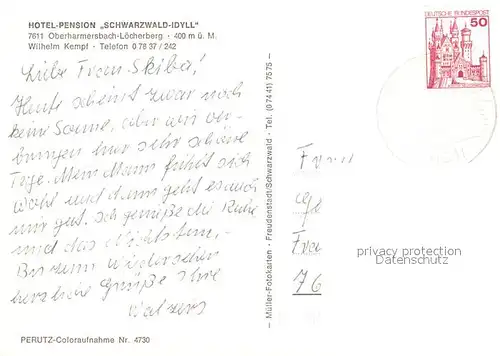 HOTEL-PENSION „SCHWARZWALD-IDYLL"
7611 Oberharmersbach-Löcherberg · 400 m ü. M.
Wilhelm Kempf · Telefon 0 78 37 / 242
Liebe Frau Skiba!
Heute scheint zwar noch
keine Sonne, aber wir ver-
bringen hier sehr schöne
Tage. Mein Mann fühlt sich
wohl und dann geht es auch
mir gut. Ich genieße die Ruhe
und das Nichtstun,-
Bis zum Wiedersehen
herzliche Grüße Ihre
Walzers
PERUTZ-Coloraufnahme Nr. 4730
— Müller-Fotokarten - Freudenstadt/Schwarzwald - Tel. (0 74 41) 75 75 —
DEUTSCHE BUNDESPOST
50
Fra
76
privacy protection
Datenschutz